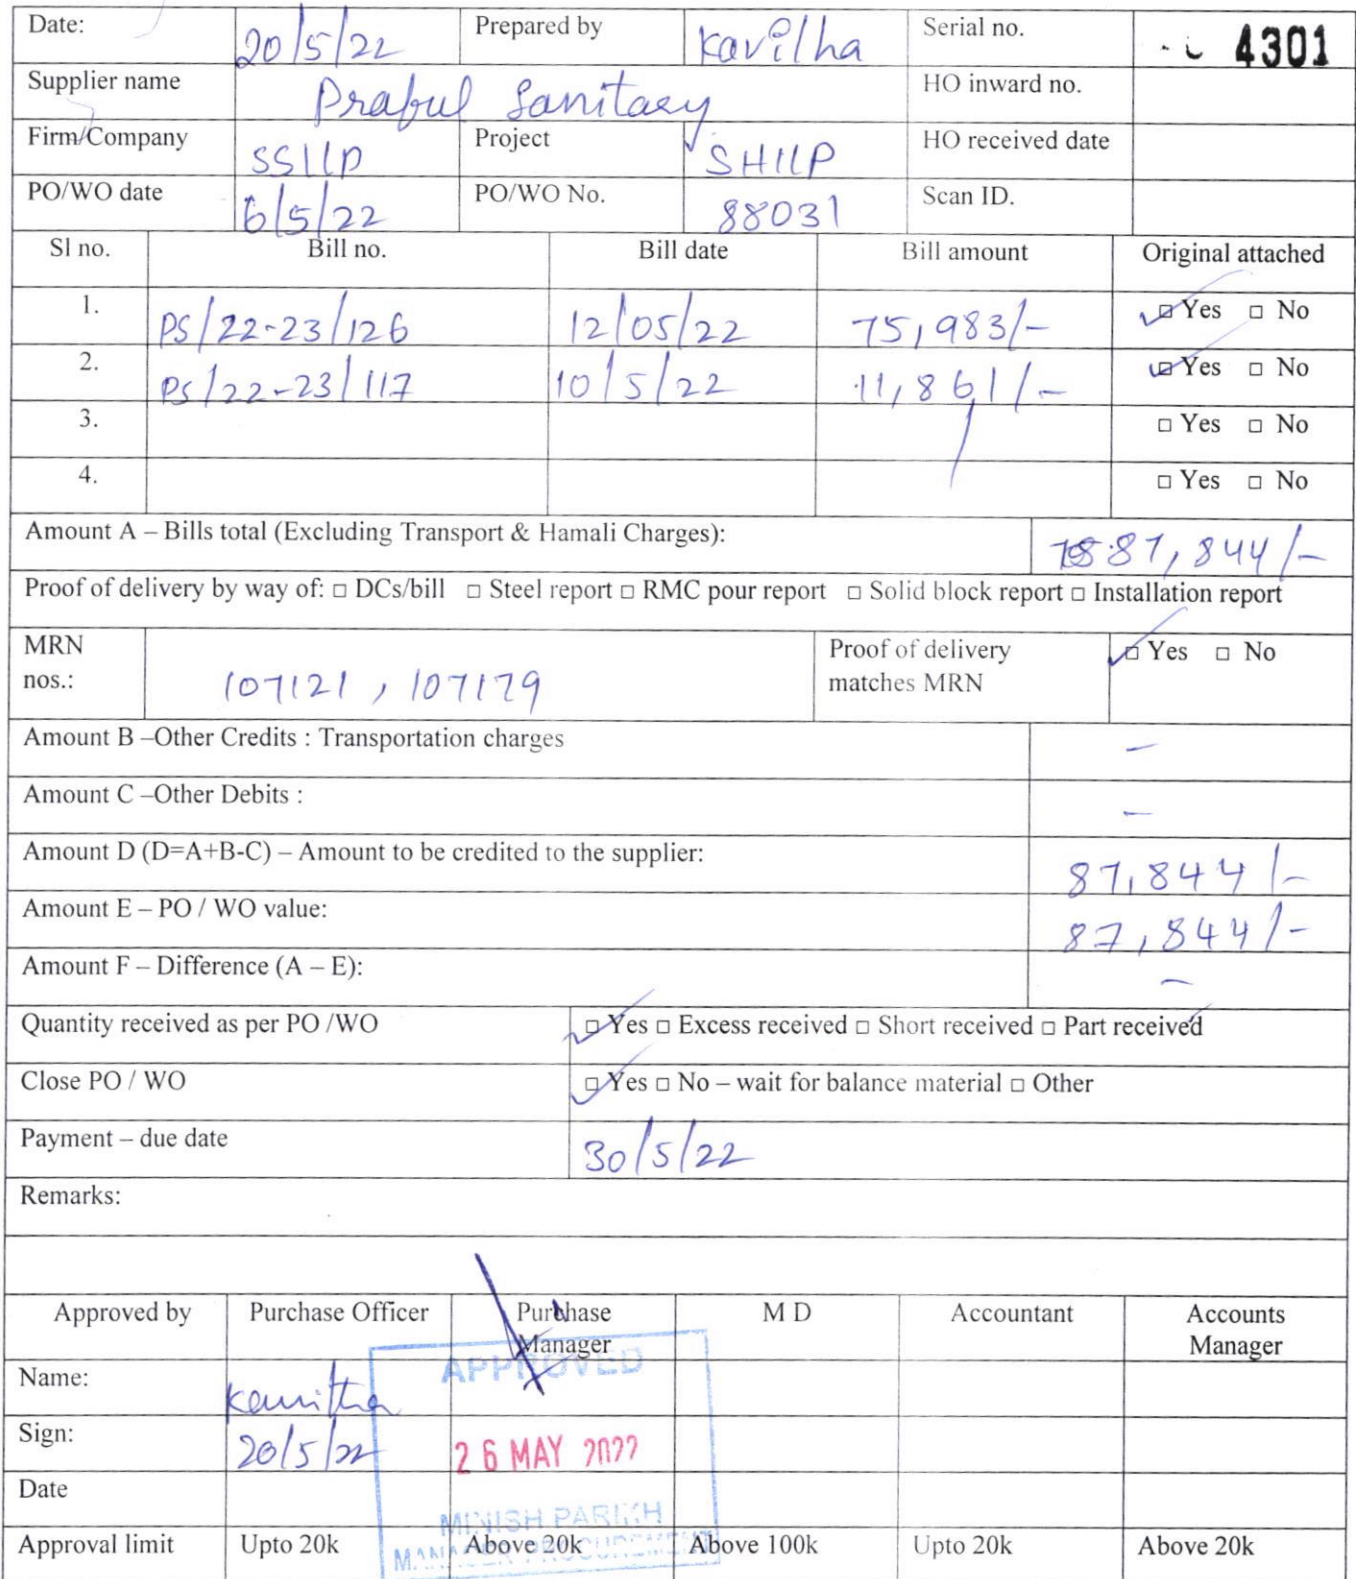 Date: 20/5/22 Prepared by Kavitha Serial no. 4301
Supplier name Praful Sanitary HO inward no.
Firm/Company SSLLP Project SHLLP HO received date
PO/WO date 6/5/22 PO/WO No. 88031 Scan ID.
Sl no. Bill no. Bill date Bill amount Original attached
1. PS/22-23/126 12/05/22 75,983/- ☑ Yes □ No
2. PS/22-23/117 10/5/22 11,861/- ☑ Yes □ No
3. □ Yes □ No
4. □ Yes □ No
Amount A – Bills total (Excluding Transport & Hamali Charges): 87,844/-
Proof of delivery by way of: □ DCs/bill □ Steel report □ RMC pour report □ Solid block report □ Installation report
MRN nos.: 107121, 107179 Proof of delivery matches MRN ☑ Yes □ No
Amount B –Other Credits : Transportation charges –
Amount C –Other Debits : –
Amount D (D=A+B-C) – Amount to be credited to the supplier: 87,844/-
Amount E – PO / WO value: 87,844/-
Amount F – Difference (A – E): –
Quantity received as per PO /WO ☑ Yes □ Excess received □ Short received □ Part received
Close PO / WO ☑ Yes □ No – wait for balance material □ Other
Payment – due date 30/5/22
Remarks:
Approved by Purchase Officer Purchase Manager M D Accountant Accounts Manager
APPROVED
Name: Kavitha
Sign: 20/5/22 26 MAY 2022
Date
MINISH PARIKH
MANAGER PROCUREMENT
Approval limit Upto 20k Above 20k Above 100k Upto 20k Above 20k